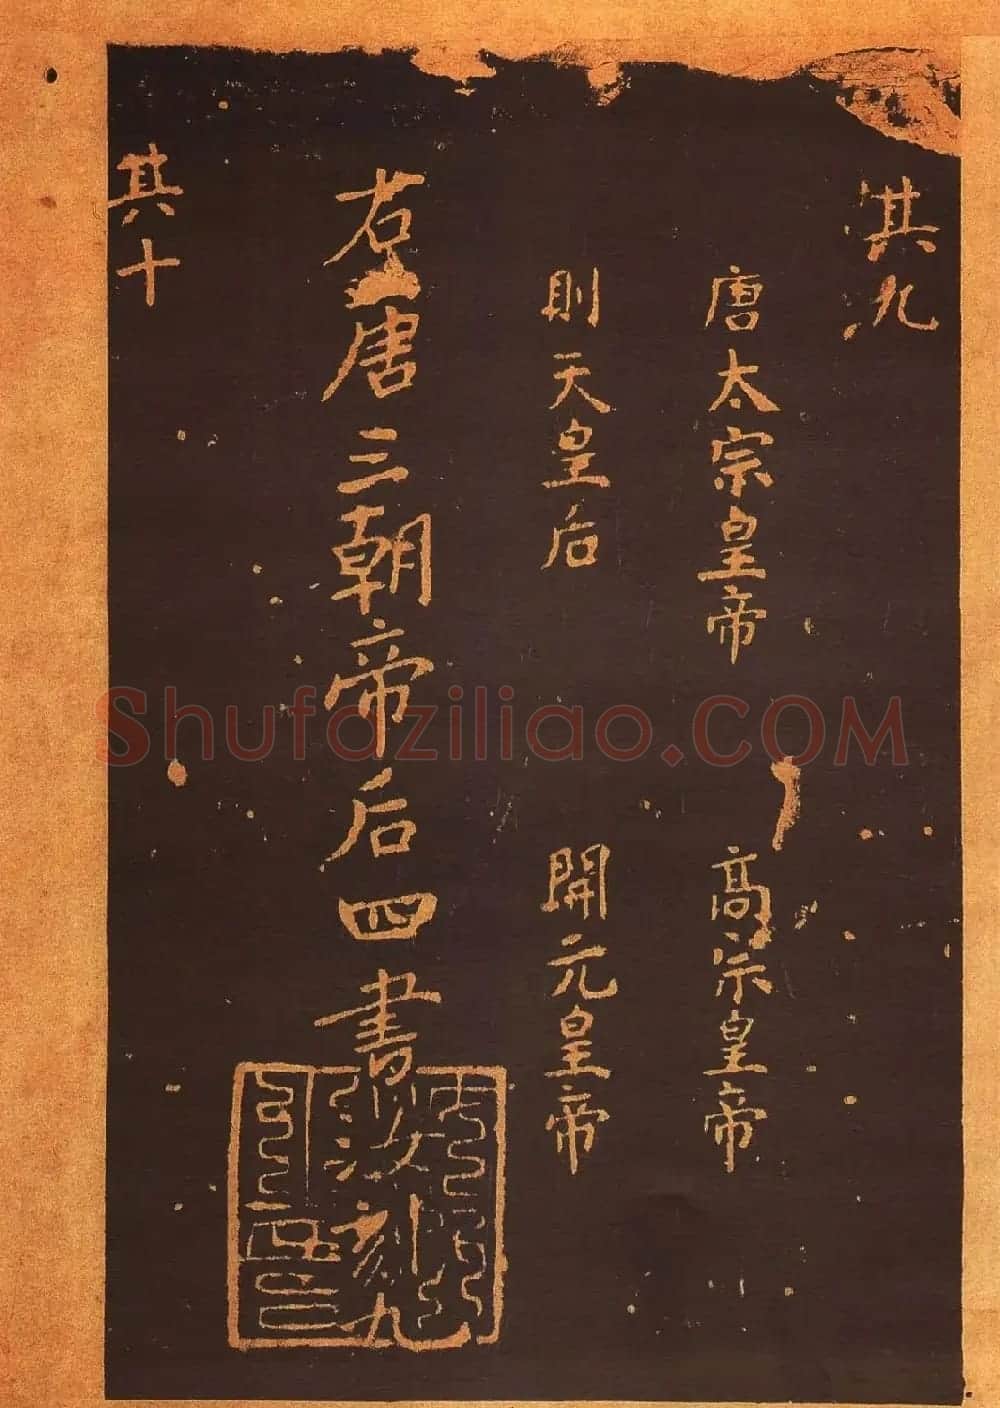 其九
唐太宗皇帝 高宗皇帝
則天皇后 開元皇帝
右唐三朝帝后四書
汝刻九
其十
Shufaziliao.COM